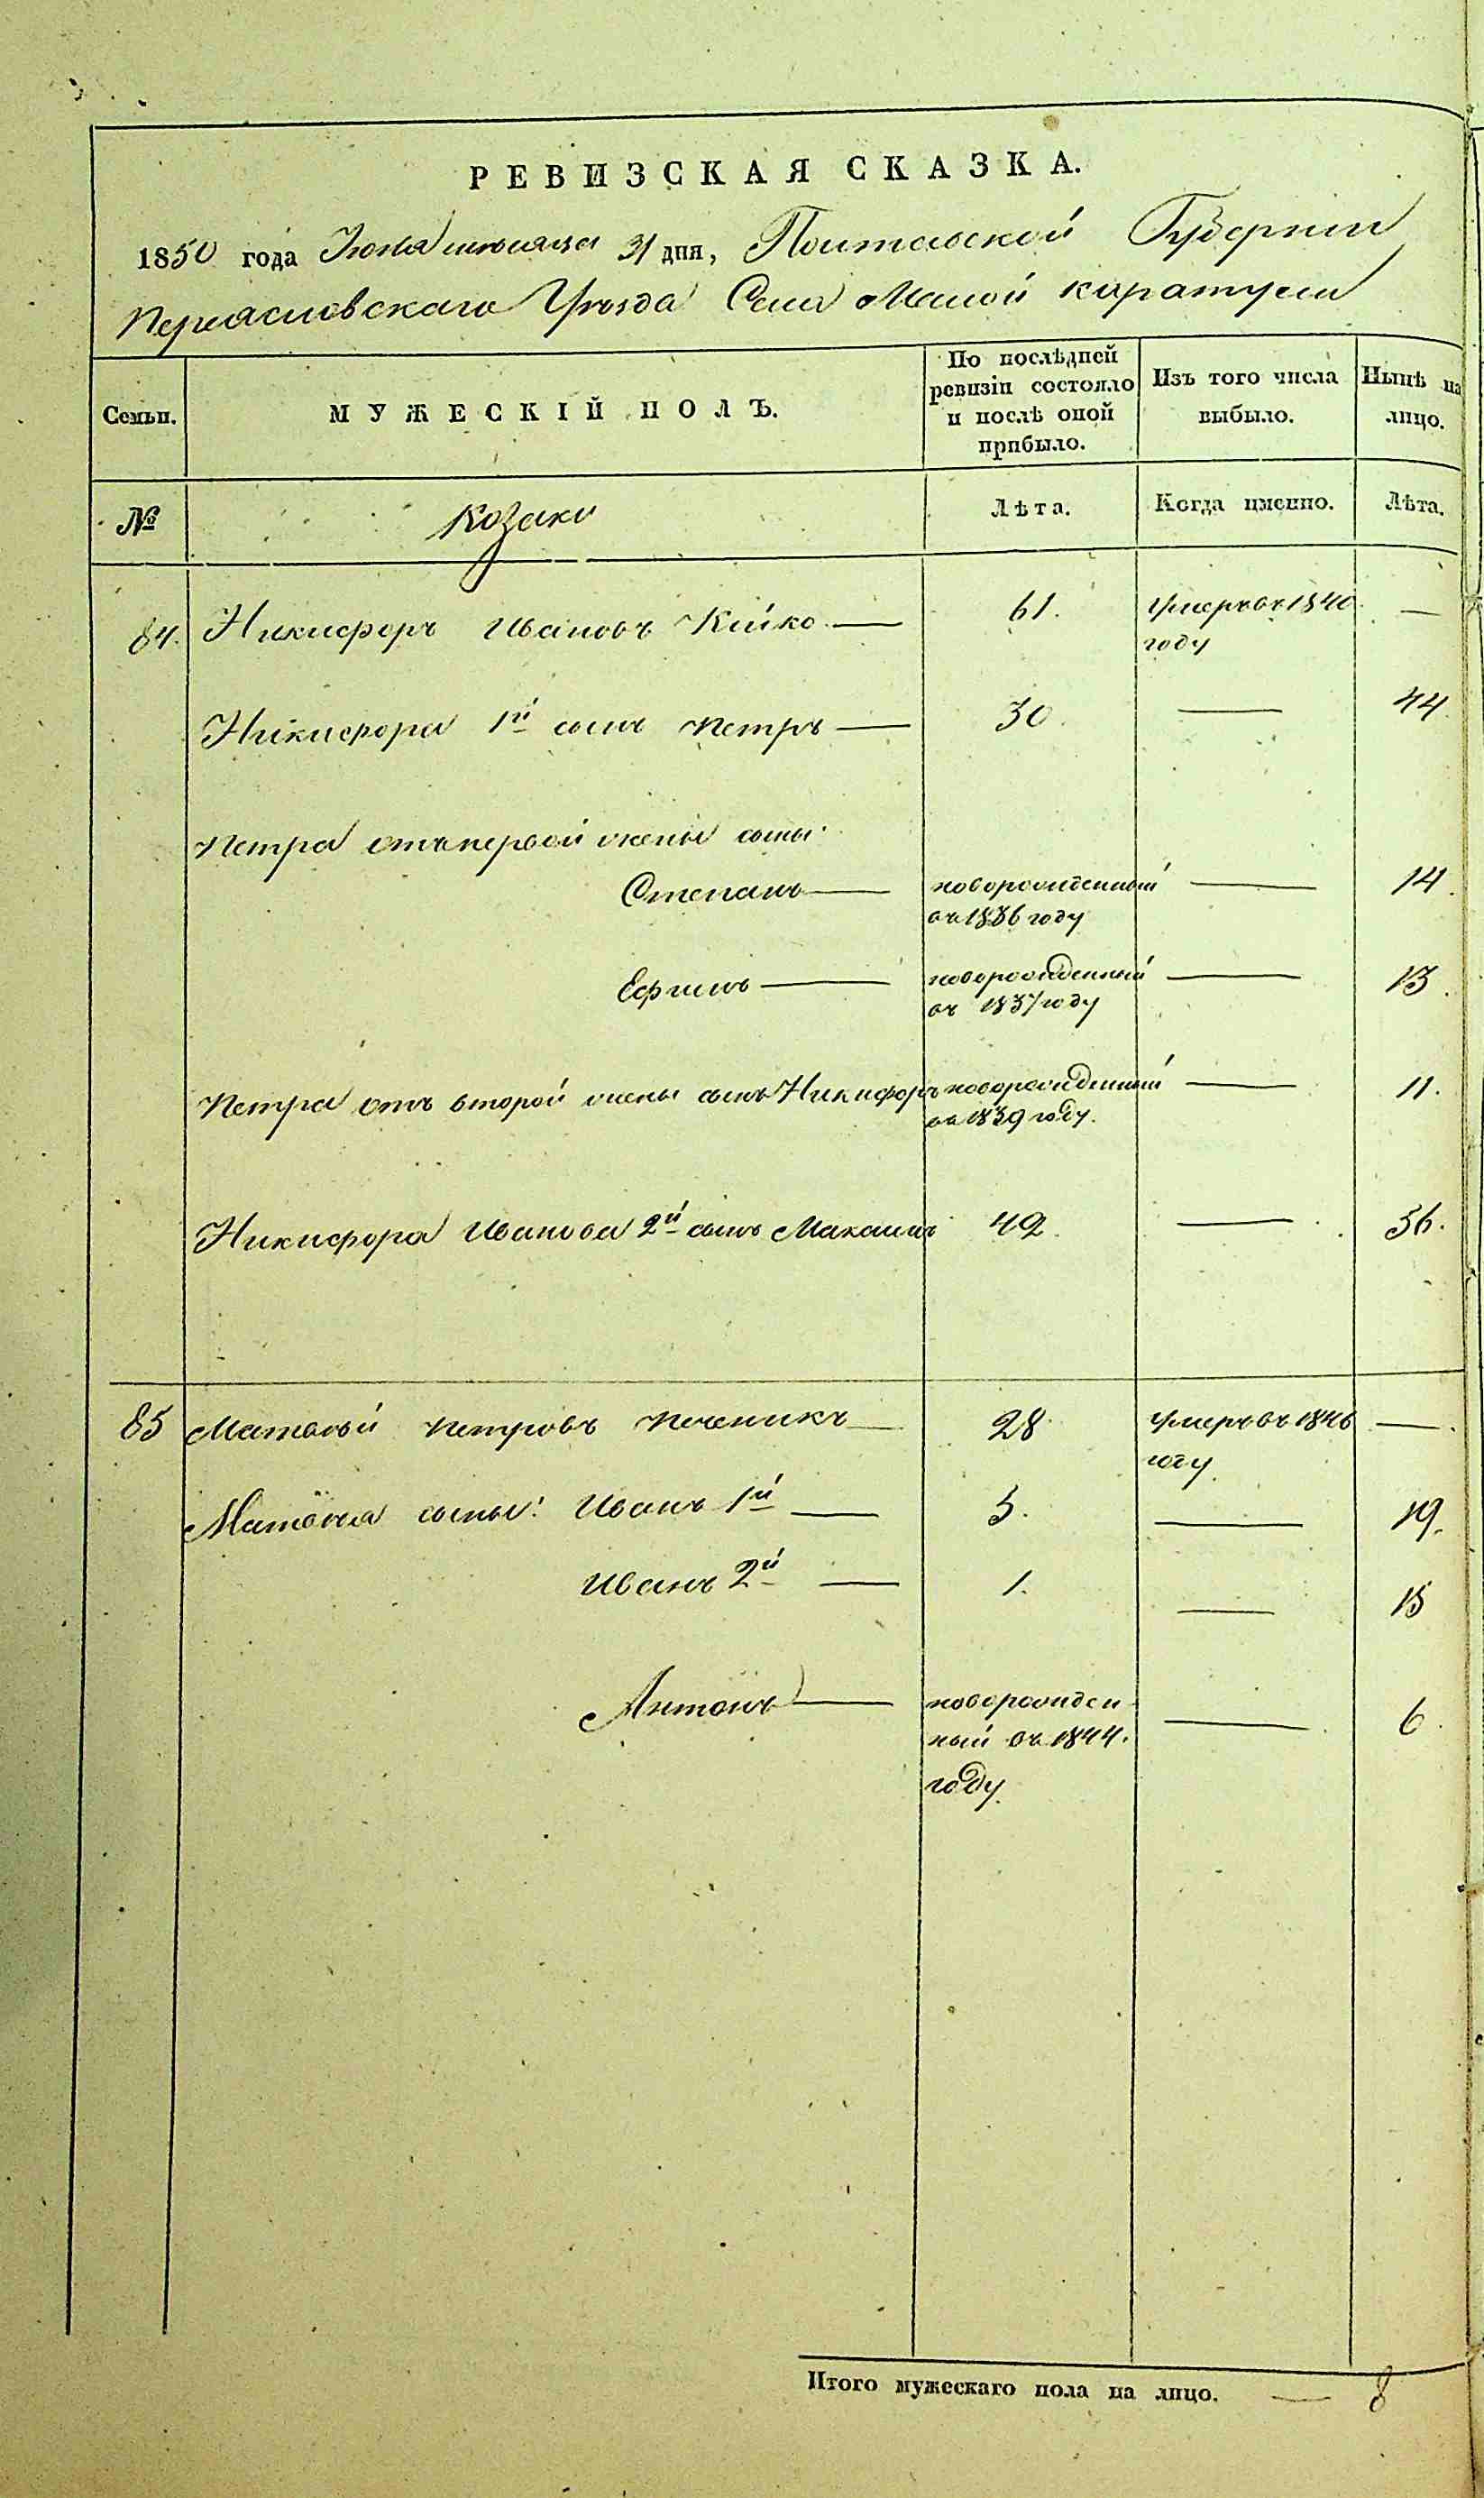 РЕВИЗСКАЯ СКАЗКА.
1850 года Июля месяца 31 дня, Полтавской Губернии
Переяславского Уезда Села Малой каратули
Семьи.
МУЖЕСКІЙ ПОЛЪ.
По послѣдней ревизіи состояло и послѣ оной прибыло.
Изъ того числа выбыло.
Нынѣ на лицо.
№
Козаки
Лѣта.
Когда именно.
Лѣта.
84. Никифоръ Ивановъ Кийко — 61. Умеръ въ 1840 году —
Никифора 1й сынъ Петръ — 30. — 44
Петра отъ первой жены сыны:
Степанъ — новорожденный въ 1836 году — 14.
Ефимъ — новорожденный въ 1837 году — 13.
Петра отъ второй жены сынъ Никифоръ новорожденный въ 1839 году. — 11.
Никифора Иванова 2й сынъ Максимъ 42. — 56.
85 Матвей Петровъ Печеникъ — 28. Умеръ въ 1846 году. —
Матвея сыны: Иванъ 1й — 5. — 19.
Иванъ 2й — 1. — 15
Антонъ — новорожден-
ный въ 1844. — 6.
году.
Итого мужескаго пола на лицо. — 8